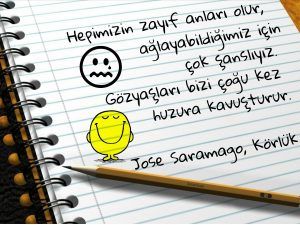 Hepimizin zayıf anları olur,
ağlayabildiğimiz için
çok şanslıyız.
Gözyaşları bizi çoğu kez
huzura kavuşturur.
Jose Saramago, Körlük